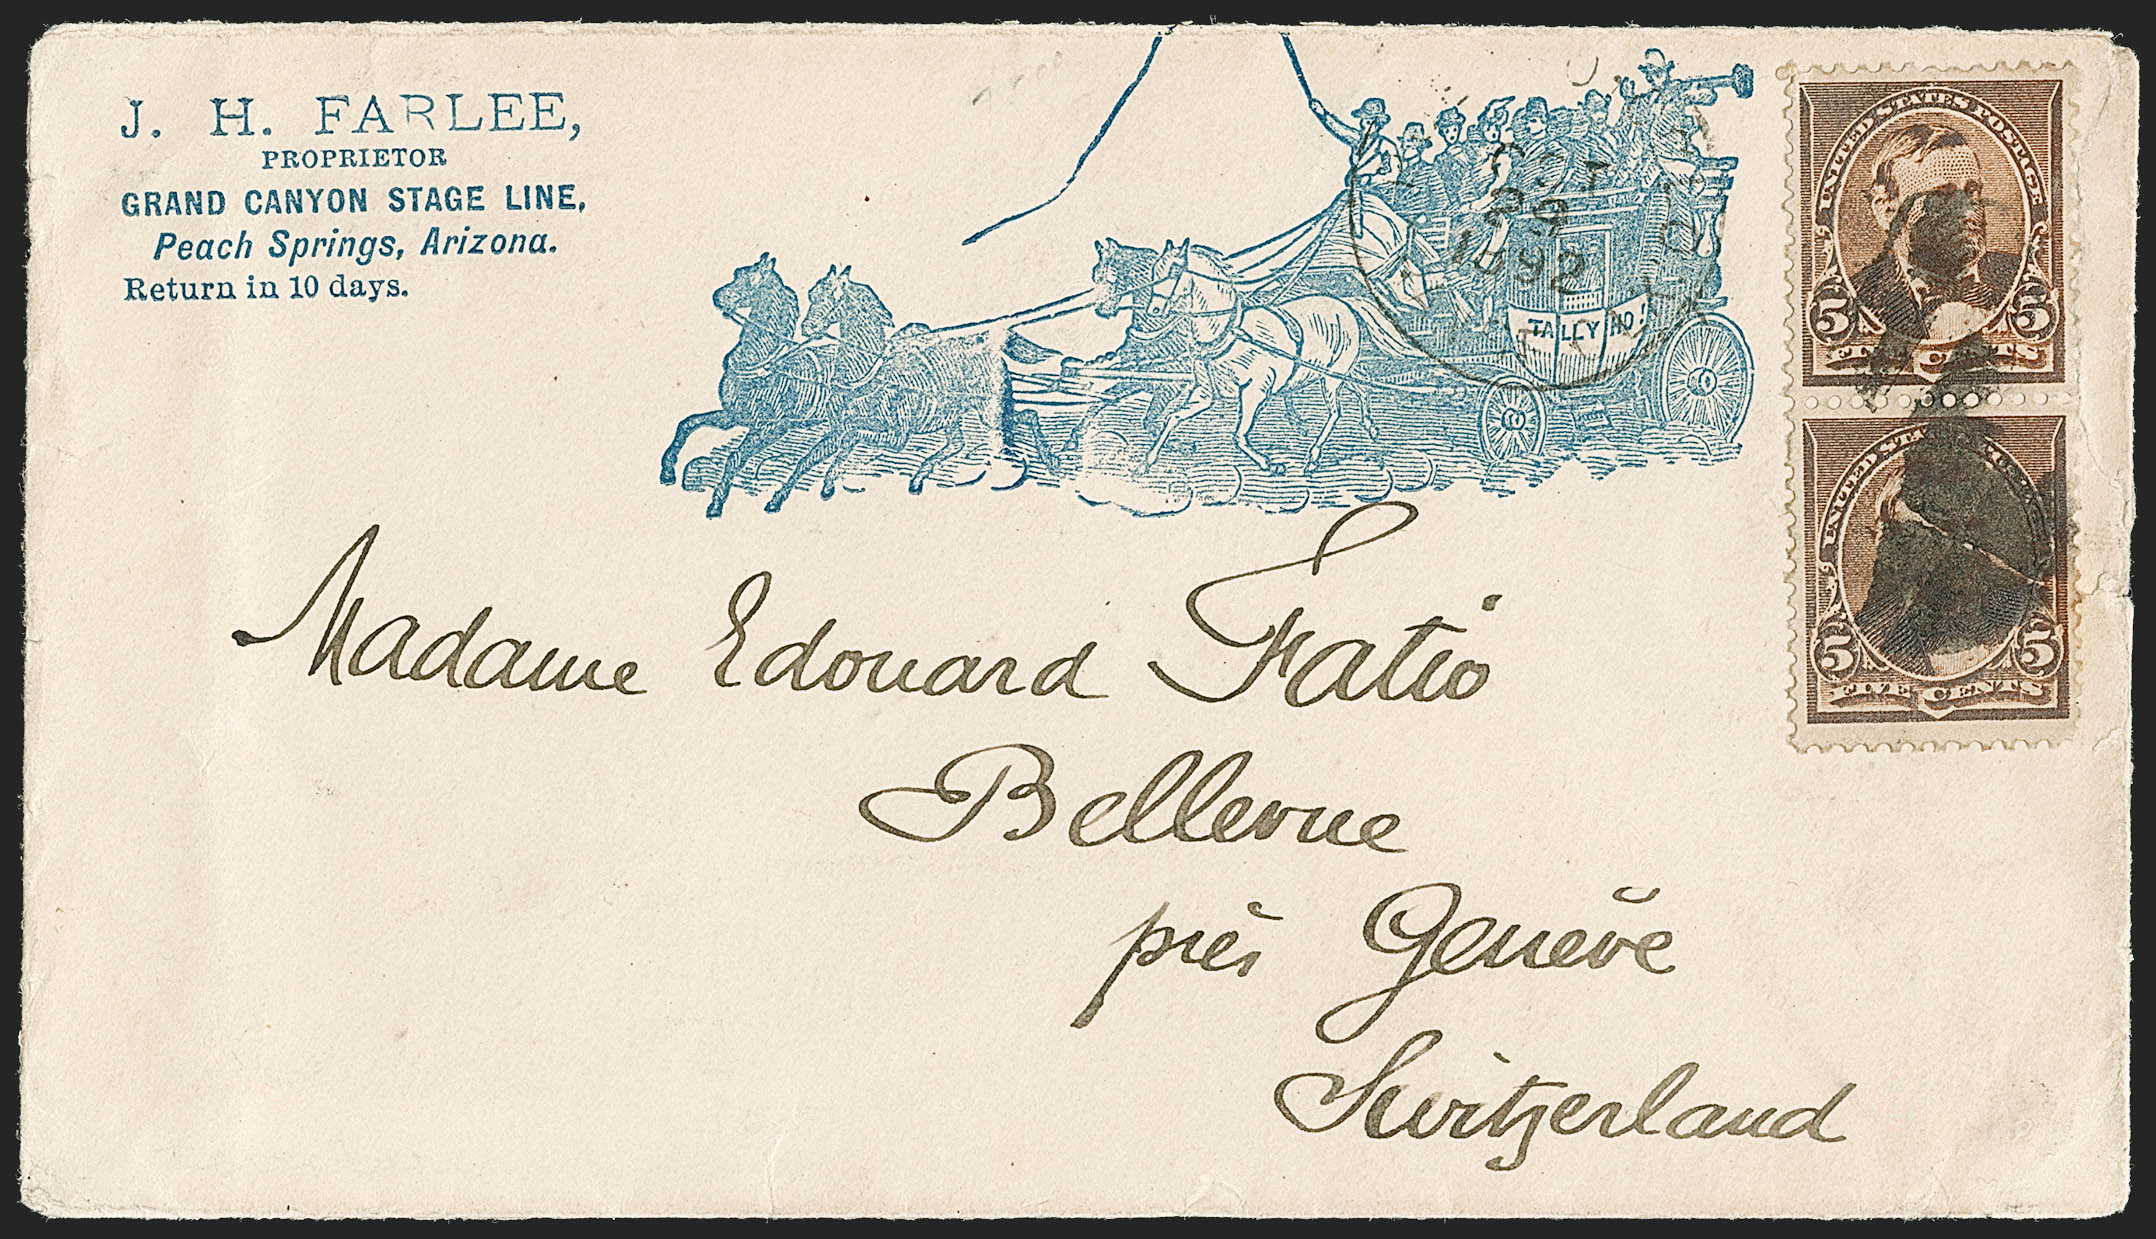 J. H. FARLEE,
PROPRIETOR
GRAND CANYON STAGE LINE,
Peach Springs, Arizona.
Return in 10 days.
TALLY HO!
OCT
29
1892
UNITED STATES POSTAGE
5 5
FIVE CENTS
UNITED
5 5
FIVE CENTS
Madame Edouard Fatio
Bellevue
près Genève
Switzerland